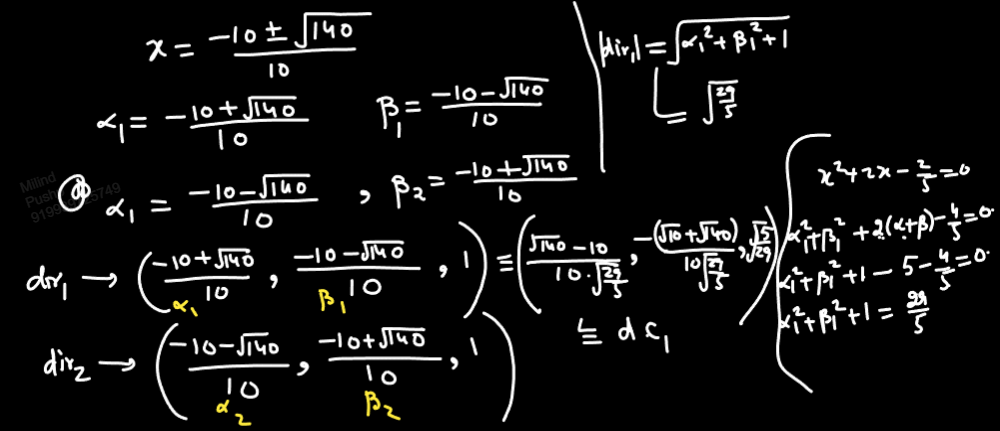 x = (-10 ± √140)/10
α₁ = (-10 + √140)/10   β₁ = (-10 - √140)/10
α₁ = (-10 - √140)/10 , β₂ = (-10 + √140)/10
dir₁ → ((-10 + √140)/10 , (-10 - √140)/10 , 1) ≡ ((√140 - 10)/(10 · √(29/5)) , -(√10 + √140)/(10√(29/5)) , √(5/29))
α₁   β₁
≡ d c₁
dir₂ → ((-10 - √140)/10 , (-10 + √140)/10 , 1)
α₂   β₂
|dir₁| = √(α₁² + β₁² + 1)
= √(29/5)
x² + 2x - 2/5 = 0
α₁² + β₁² + 2(α + β) - 4/5 = 0.
α₁² + β₁² + 1 - 5 - 4/5 = 0.
α₁² + β₁² + 1 = 29/5
Milind